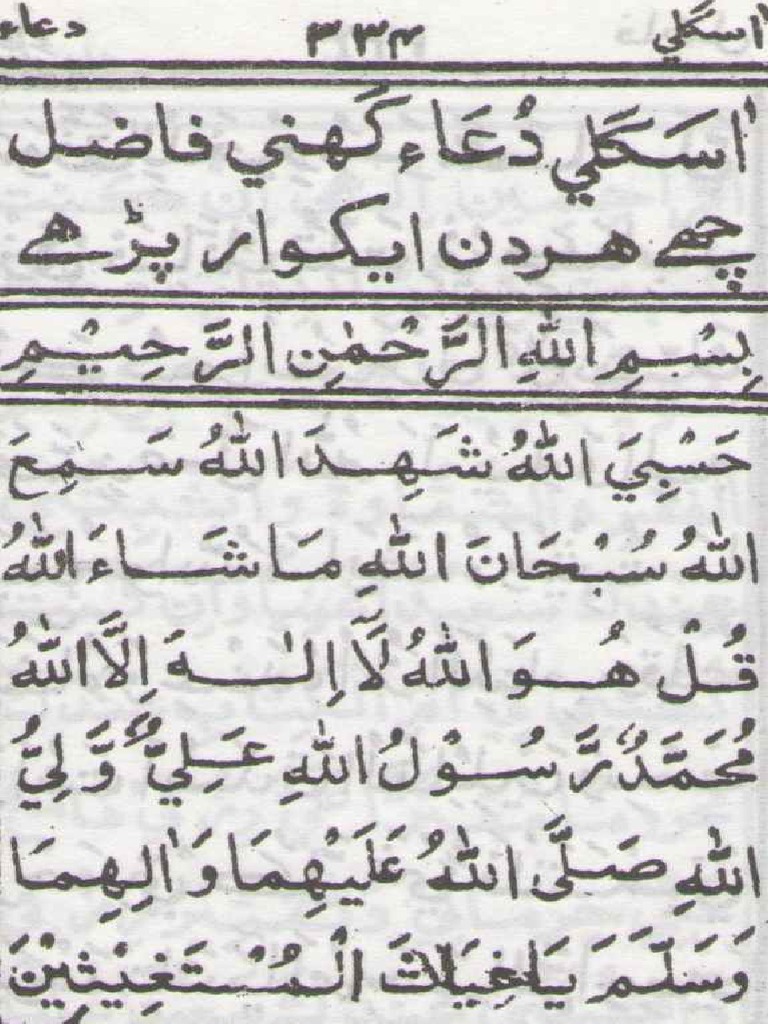 اٰسَگلي ٣٣٤ دعاء
اٰسَگَلي دُعَاء گَهني فاضل
چھے هردن ايکوار پڑهے
بِسْمِ اللّٰهِ الرَّحْمٰنِ الرَّحِيْمِ
حَسْبِيَ اللّٰهُ شَهِدَ اللّٰهُ سَمِعَ
اللّٰهُ سُبْحَانَ اللّٰهِ مَاشَاءَ اللّٰهُ
قُلْ هُوَ اللّٰهُ لَآ اِلٰهَ اِلَّا اللّٰهُ
مُحَمَّدٌ رَّسُوْلُ اللّٰهِ عَلِيٌّ وَّلِيُّ
اللّٰهِ صَلَّى اللّٰهُ عَلَيْهِمَا وَاٰلِهِمَا
وَسَلَّمَ يَاغِيَاثَ الْمُسْتَغِيْثِيْنَ